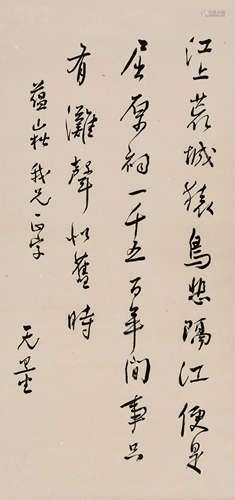 江上荒城猿鳥悲隔江便是
屈原祠一千五百年間事只
有灘聲似舊時
蘊山我兄正字
无量